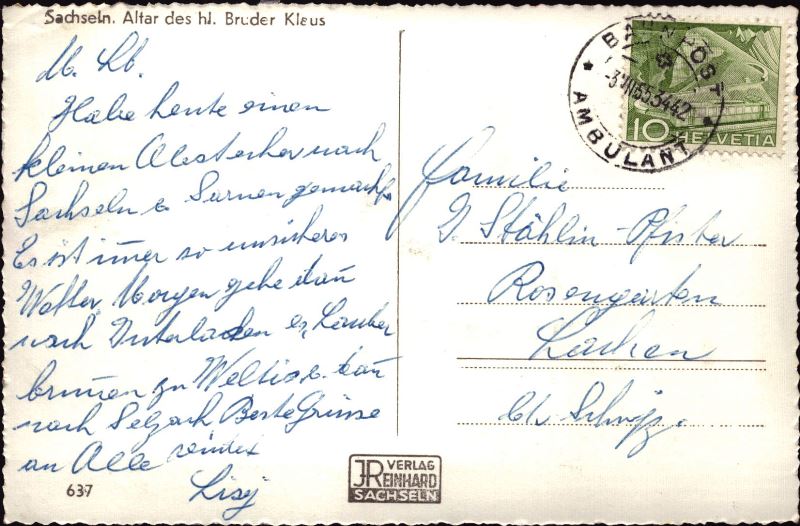 Sachseln. Altar des hl. Bruder Klaus
M. Lb.
Habe heute einen
kleinen Abstecher nach
Sachseln & Sarnen gemacht.
Es ist imer so unsicheres
Wetter. Morgen gehe dan
nach Interlacken &
brunen zu
nach Selzach Beste Grüsse
an Alle
Lisy
637
JR VERLAG
REINHARD
SACHSELN
BAHNPOST
AMBULANT
3442
10 HELVETIA
Familie
J. Stählin-Pfister
Rosengarten
Lachen
Kt. Schwyz.